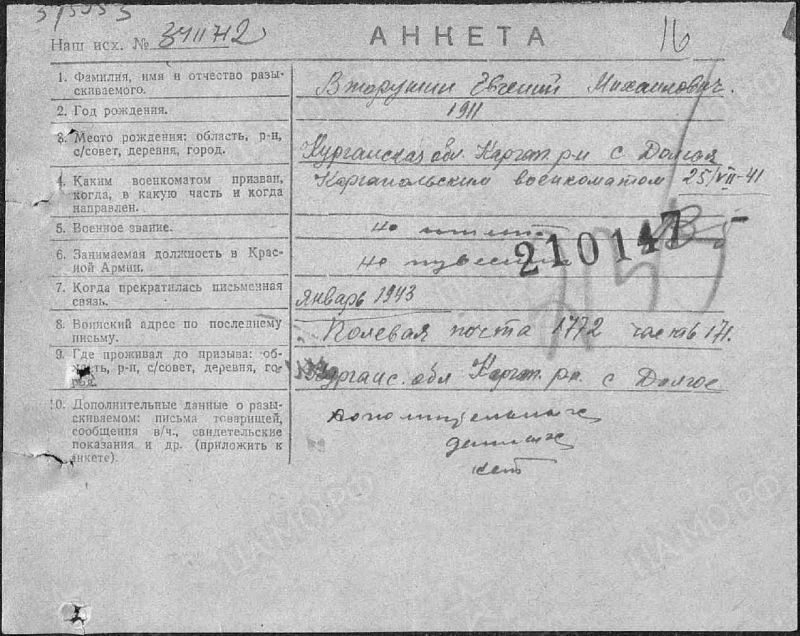 315953
Наш исх. №
АНКЕТА
16
1. Фамилия, имя и отчество разы-
скиваемого.
Вторушин Евгений Михаилович.
2. Год рождения.
1911
3. Место рождения: область, р-н,
с/совет, деревня, город.
Курганская обл. Каргап. р-н с Долгая
4. Каким военкоматом призван,
когда, в какую часть и когда
направлен.
Каргапольским военкоматом 25/VII-41
5. Военное звание.
не
210147
6. Занимаемая должность в Крас-
ной Армии.
не известна
7. Когда прекратилась письменная
связь.
январь 1943
8. Воинский адрес по последнему
письму.
Полевая почта 1772 часть 171.
9. Где проживал до призыва: об-
ласть, р-н, с/совет, деревня, го-
род.
Курганс. обл Каргап. р-н. с Долгое
10. Дополнительные данные о разы-
скиваемом: письма товарищей,
сообщения в/ч., свидетельские
показания и др. (приложить к
анкете).
дополнительных
данных
нет
ЦАМО.РФ
ЦАМО.РФ